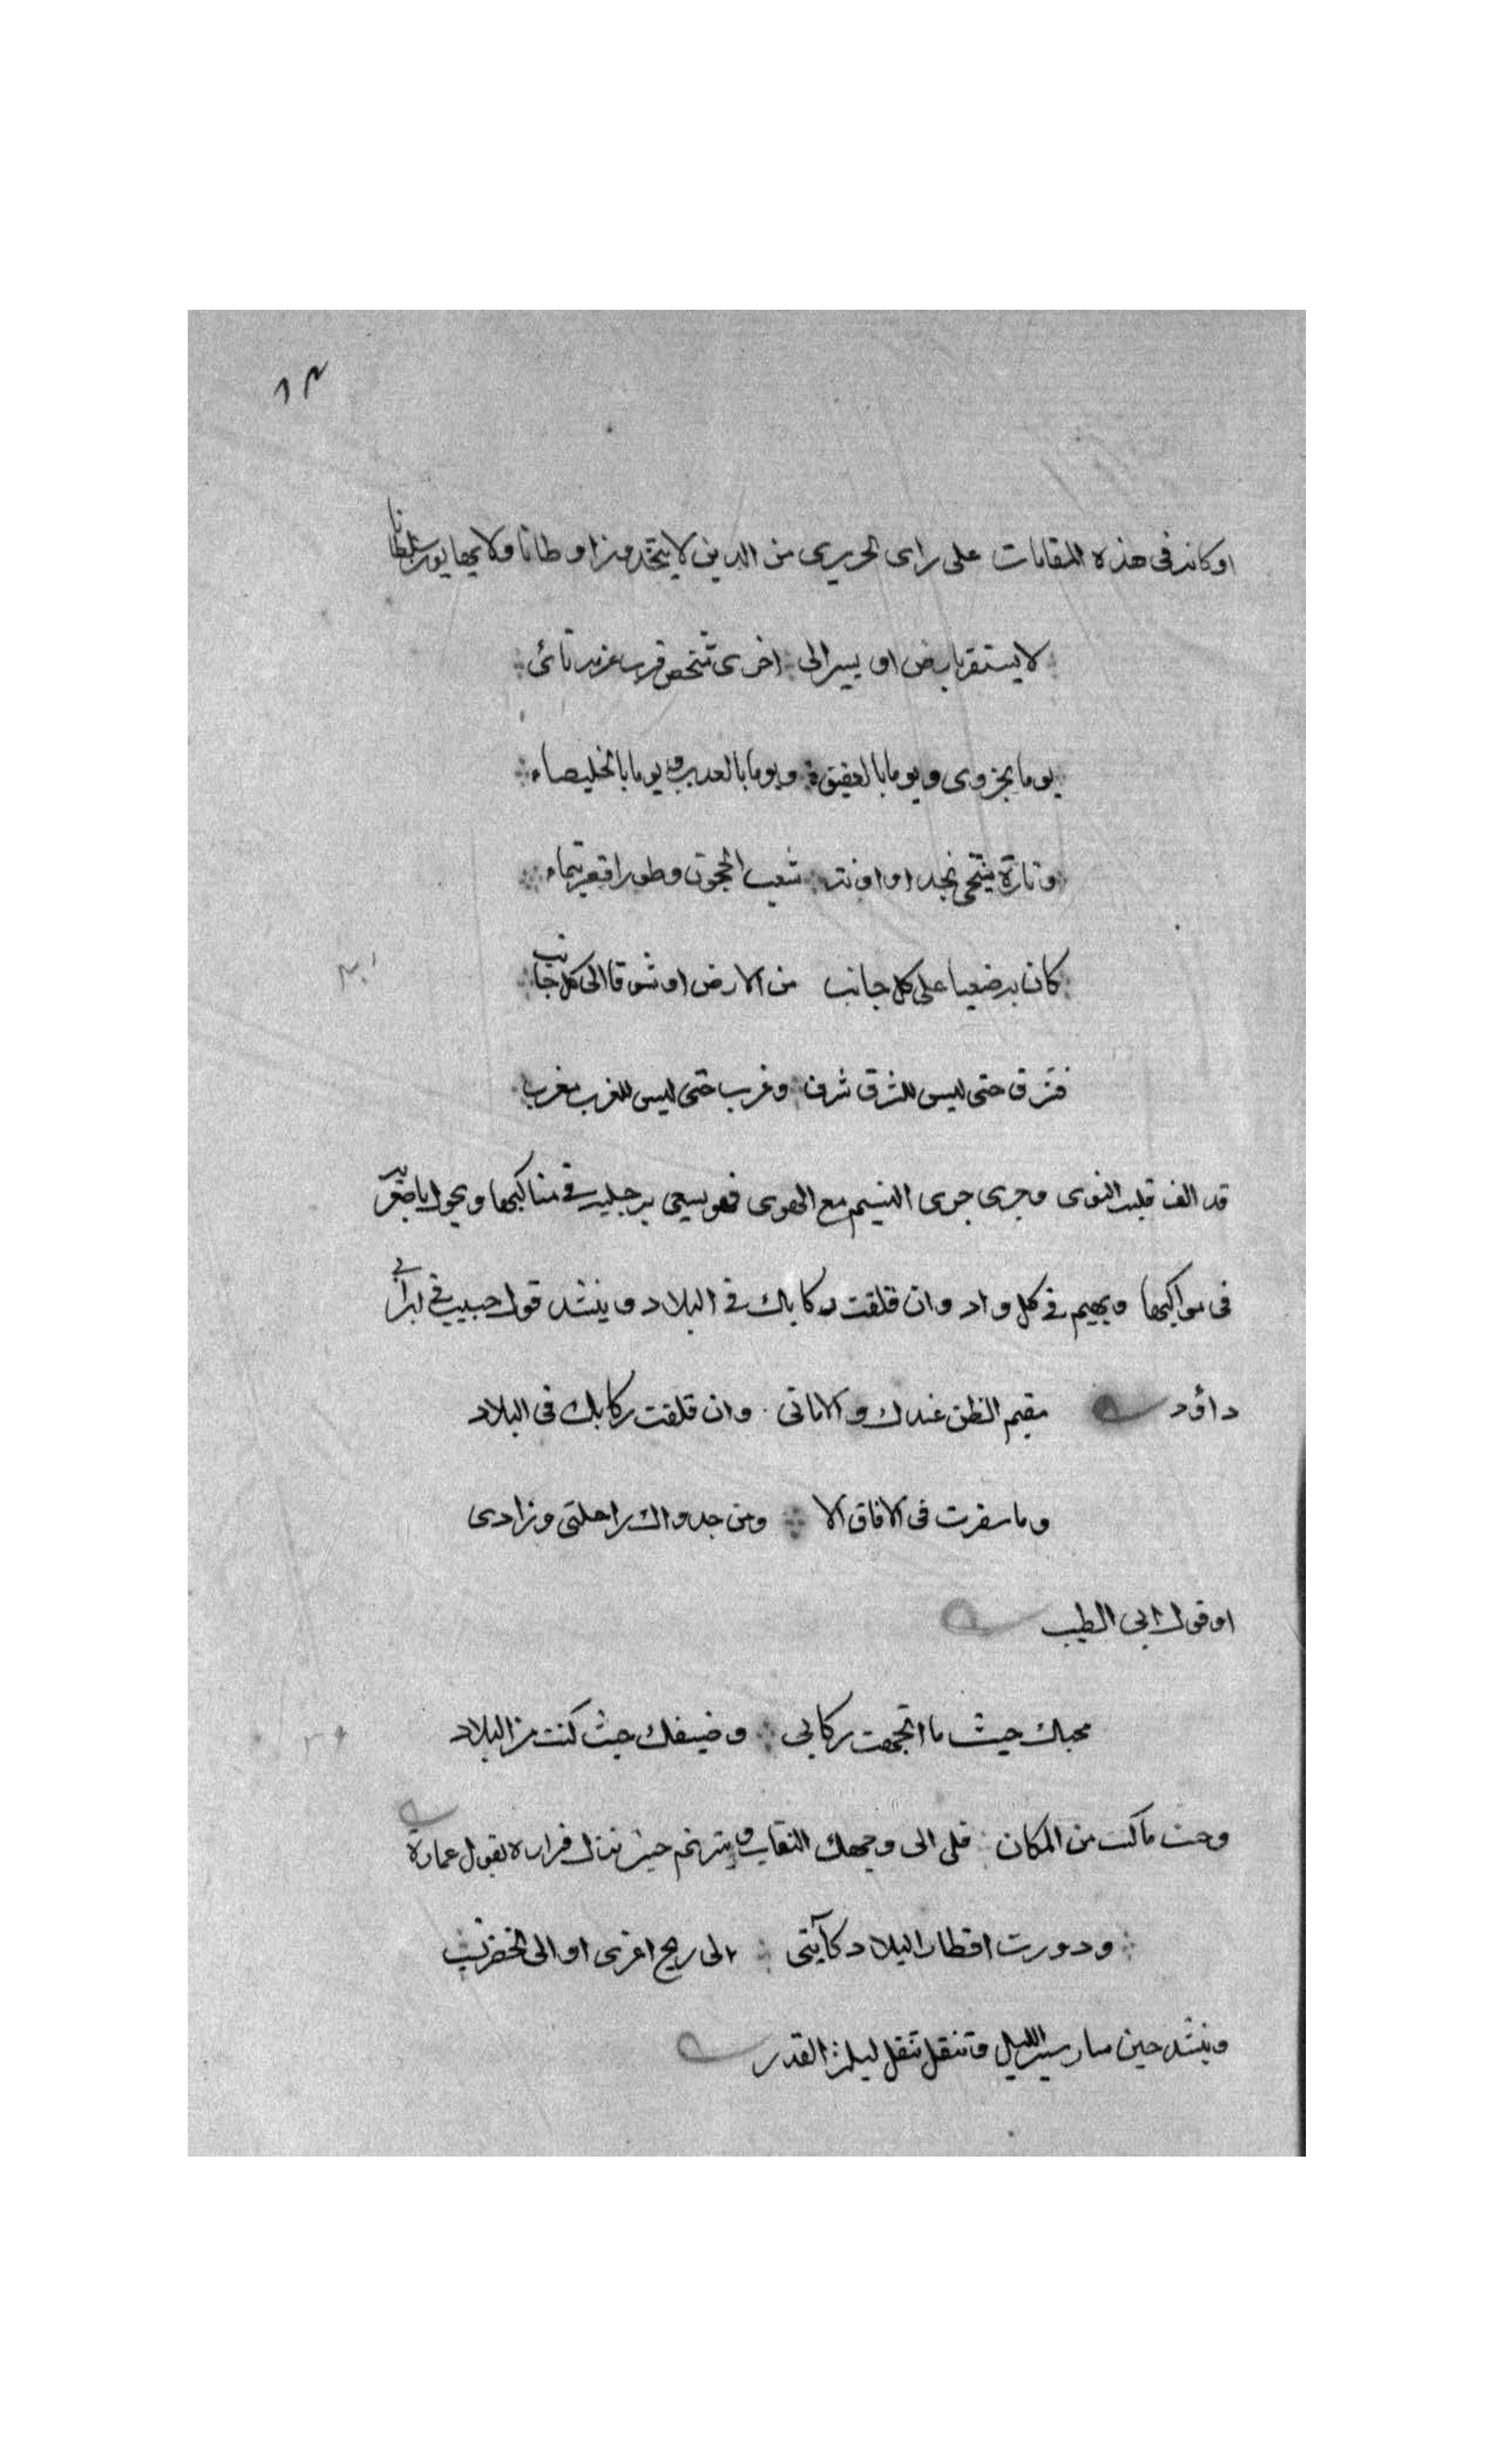 ١٣
او كانه فى هذه المقامات على راى الحريرى من الذين لا يتخذون اوطانا ولا يهابون سلطانا
لا يستقر بارض او يسير الى اخرى شخص قريب عزمه نائى
يوما بحزوى ويوما بالعقيق ويوما بالعذيب ويوما بالخليصاء
وتارة ينتحى نجدا واونة شعب الحجون وطورا قصر تيماء
كان به ضغنا على كل جانب من الارض او شوقا الى كل جانب
فشرق حتى ليس للشرق شرق وغرب حتى ليس للغرب مغرب
قد الف قلبه النوى وجرى جرى النسيم مع الهوى فهو يسعى برجليه فى مناكبها ويجول باصغريه
فى مواكبها ويهيم فى كل واد وان قلقت ركابك فى البلاد وينشد قول حبيب فى ابن ابى
داؤد مقيم الظن عندك والامانى وان قلقت ركابك فى البلاد
وما سفرت فى الافاق الا ومن جدواك راحلتى وزادى
او قول ابى الطيب
محبك حيث ما اتجهت ركابى وضيفك حيث كنت من البلاد
وحيث ما كنت من المكان فلى الى وجهك التفات ويترنم حين نزل قراره بقول عمارة
ودورت اقطار البلاد كأننى الى ريح اعزى او الى الخضر انسب
وينشد حين سار سير الليل وتنقل تنقل ليلة القدر